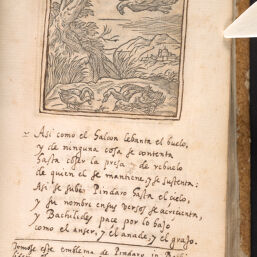 Asi como el halcon lebanta el buelo,
y de ninguna cosa se contenta
hasta coger la presa y de rebuelo
de quien el se mantiene, y se sustenta:
Asi se sube Pindaro hasta el cielo,
y su nombre en sus versos se acrecienta,
y Bachilides pace por lo bajo
como el anser, y el anade, y el grajo.
Tomose este emblema de Pindaro, in